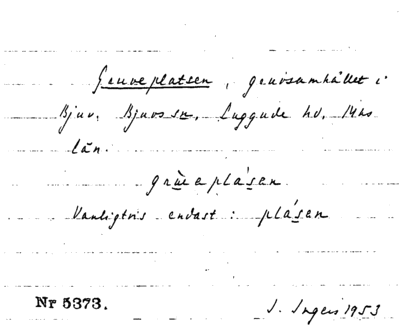 Gruveplatsen, gruvsamhället i
Bjuv. Bjuvs sn. Luggude hd. Mhs
län.
grùveplásen
Vanligtvis endast: plásen
Nr 5373.
J. Ingers 1953